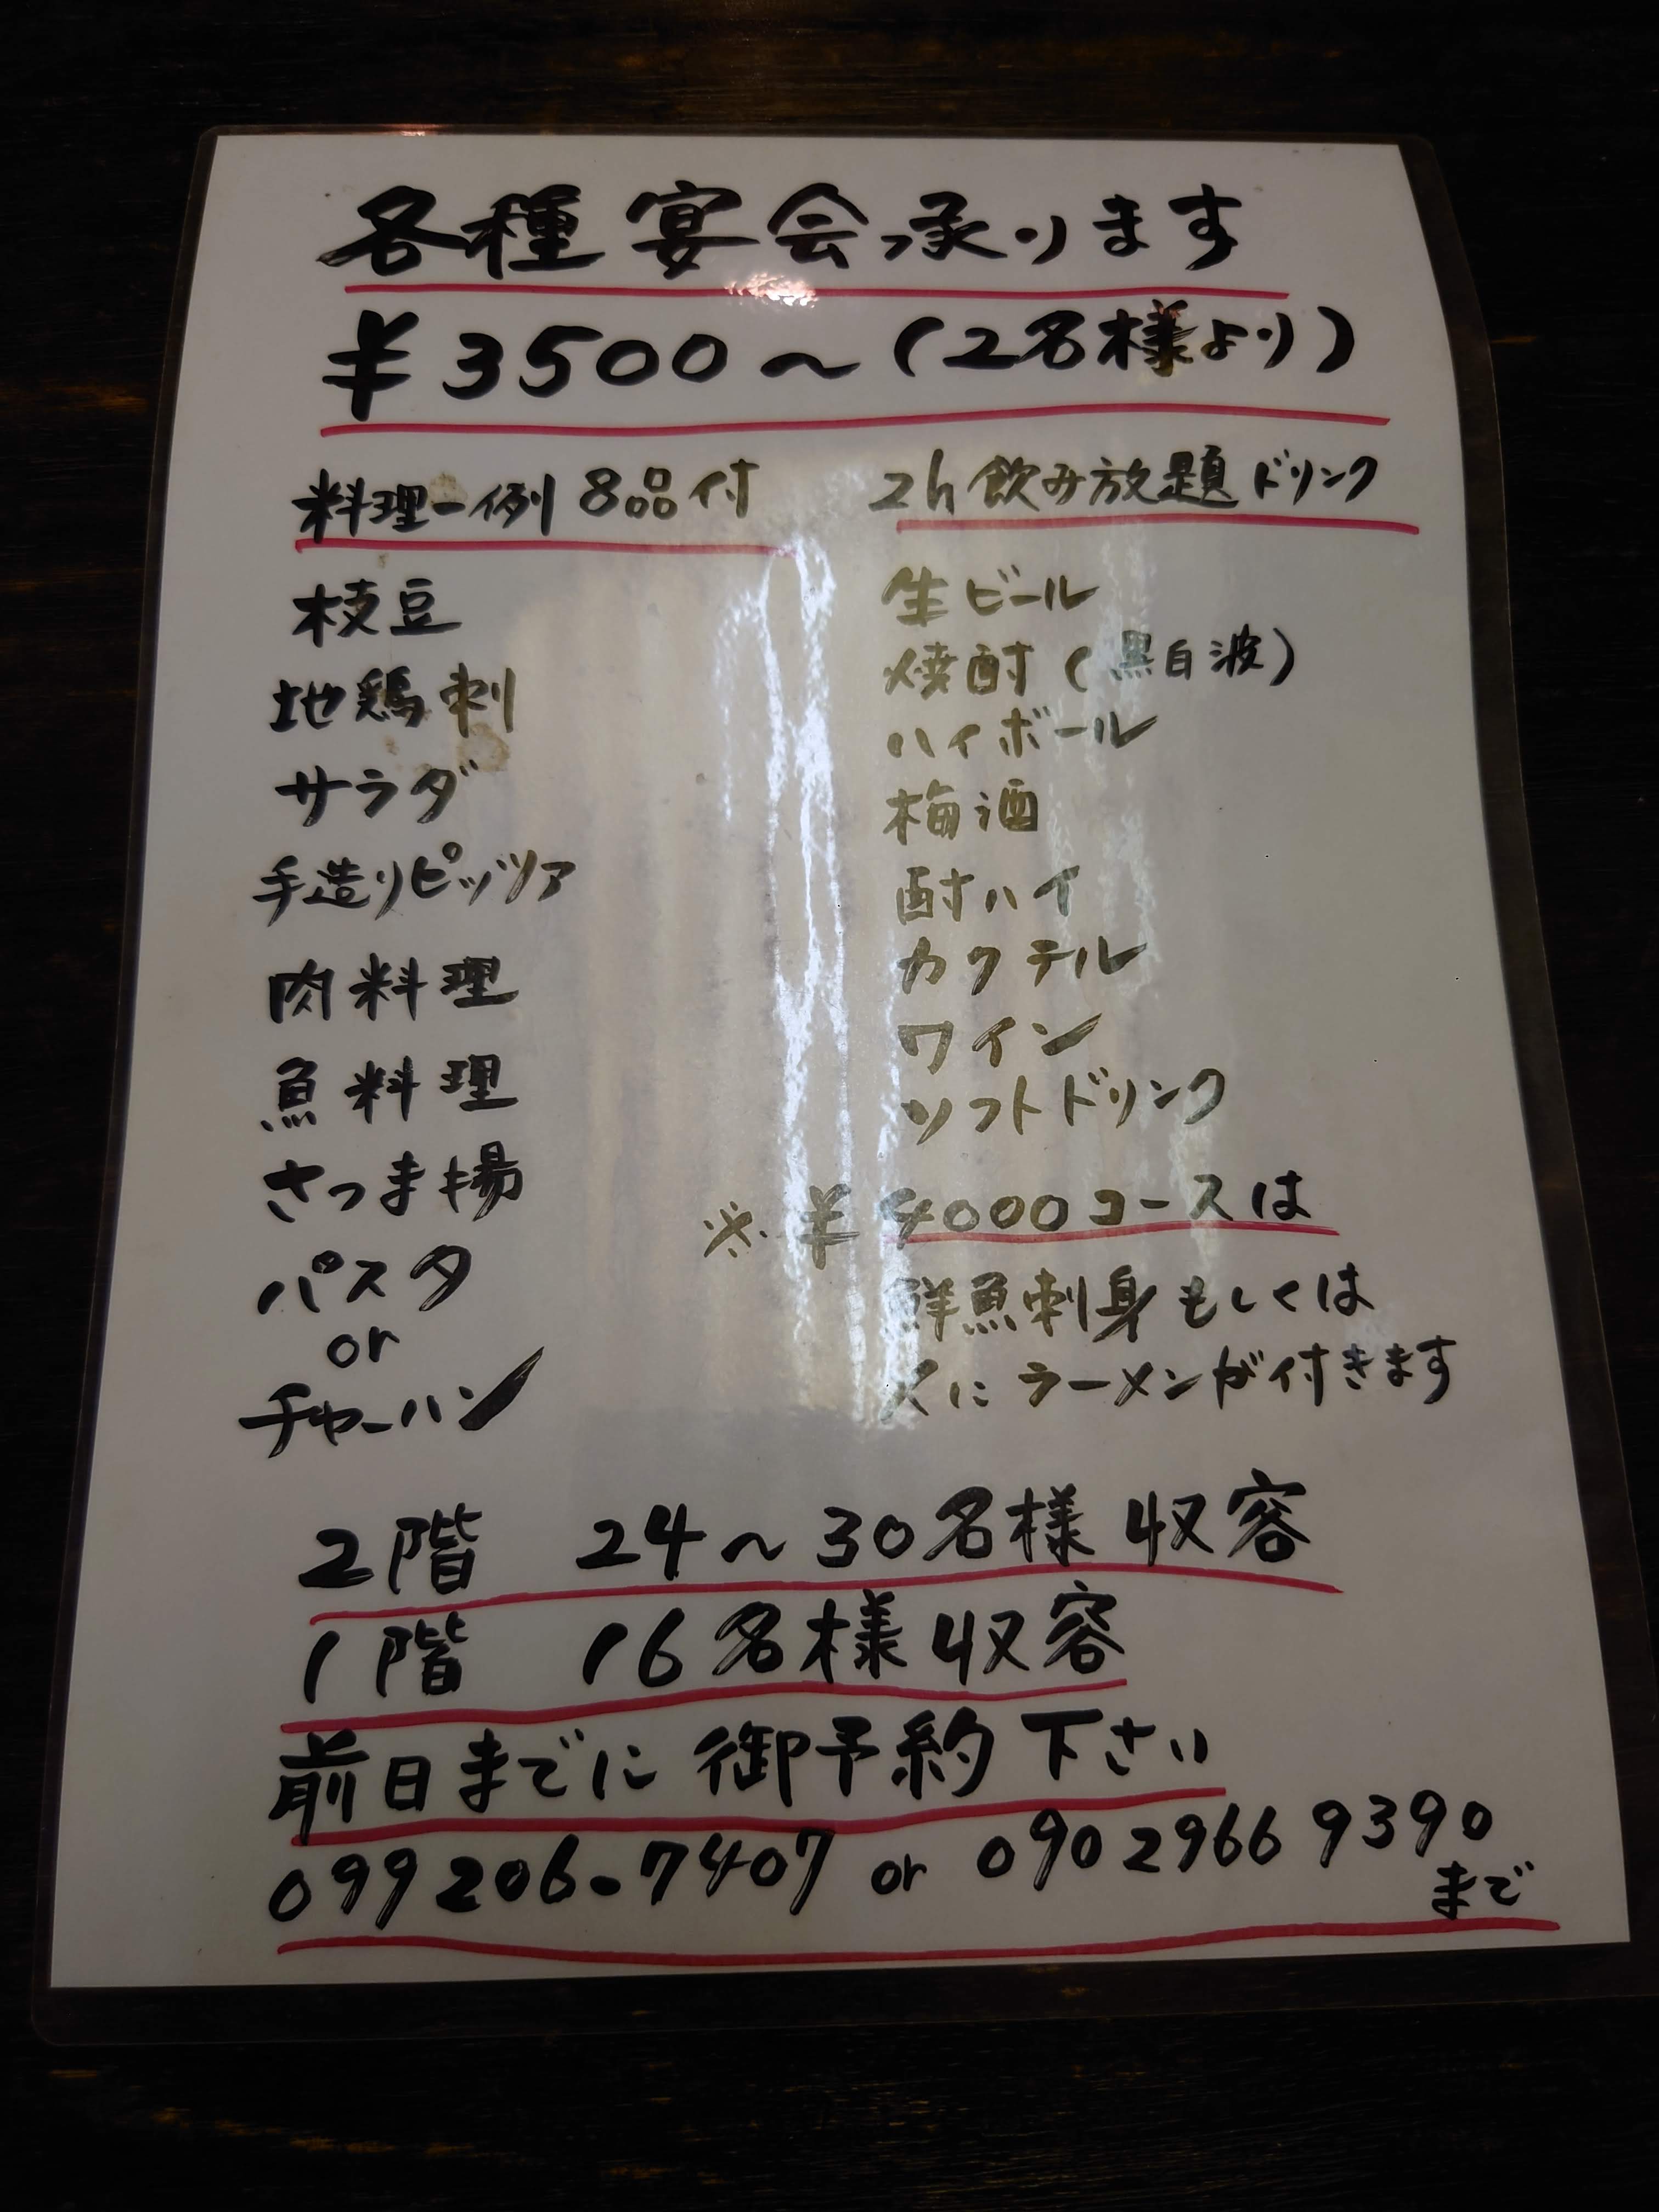 各種宴会承ります
¥3500〜(2名様より)
料理一例 8品付
枝豆
地鶏刺
サラダ
手造りピッツァ
肉料理
魚料理
さつま揚
パスタ
or
チャーハン
2h飲み放題ドリンク
生ビール
焼酎(黒白波)
ハイボール
梅酒
酎ハイ
カクテル
ワイン
ソフトドリンク
※¥4000コースは
鮮魚刺身もしくは
〆にラーメンが付きます
2階 24〜30名様収容
1階 16名様収容
前日までに御予約下さい
099206-7407 or 09029669390
まで